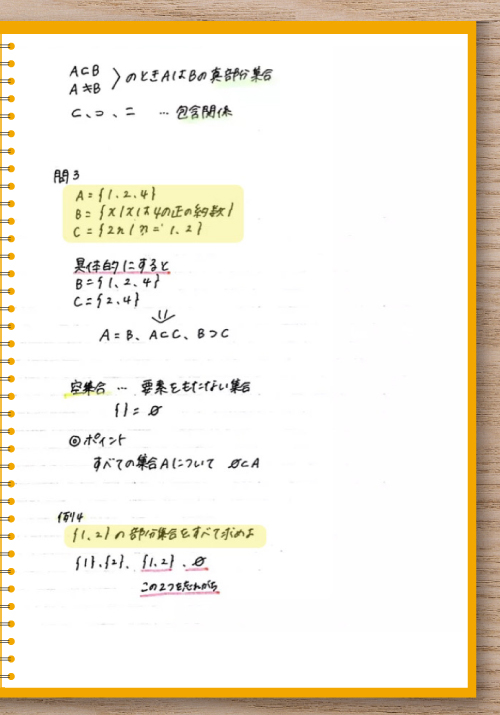 A⊂B
A≠B 〉のときAはBの真部分集合
⊂、⊃、= … 包含関係
問3
A={1,2,4}
B={x|xは4の正の約数}
C={2n|n=1,2}
具体的にすると
B={1,2,4}
C={2,4}
⇓
A=B、A⊂C、B⊃C
空集合 … 要素をもたない集合
{}=∅
◎ポイント
すべての集合Aについて ∅⊂A
例4
{1,2}の部分集合をすべて求めよ
{1},{2}、{1,2}、∅
この2つを忘れがち